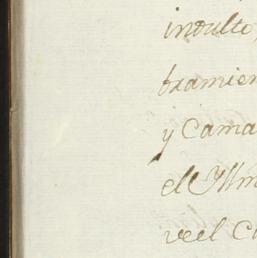 indulto,
bramien
y Cama
el Illm
veel C